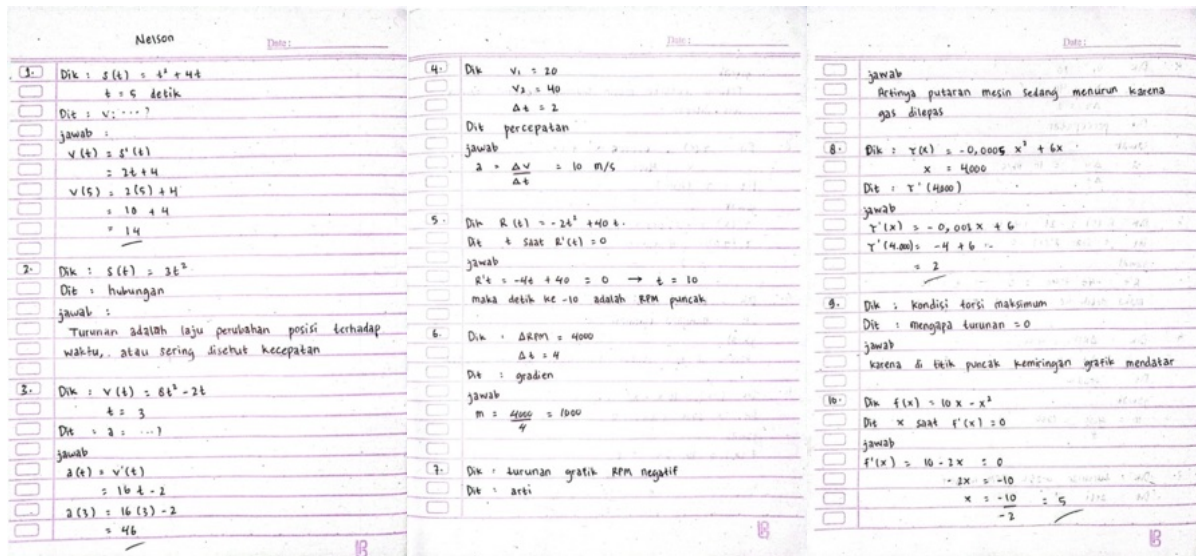 Nelson
Date :
1. Dik : s(t) = t² + 4t
t = 5 detik
Dit : v : ...?
jawab :
v(t) = s'(t)
= 2t + 4
v(5) = 2(5) + 4
= 10 + 4
= 14
2. Dik : s(t) = 3t²
Dit : hubungan
jawab :
Turunan adalah laju perubahan posisi terhadap
waktu, atau sering disebut kecepatan
3. Dik : v(t) = 8t² - 2t
t = 3
Dit : a : ...?
jawab
a(t) = v'(t)
= 16t - 2
a(3) = 16(3) - 2
= 46
Date :
4. Dik v₁ = 20
v₂ = 40
Δt = 2
Dit percepatan
jawab
a = Δv/Δt = 10 m/s
5. Dik R(t) = -2t² + 40t.
Dit t saat R'(t) = 0
jawab
R't = -4t + 40 = 0 → t = 10
maka detik ke -10 adalah RPM puncak
6. Dik : ΔRPM = 4000
Δt = 4
Dit : gradien
jawab
m = 4000/4 = 1000
7. Dik : turunan grafik RPM negatif
Dit : arti
Date :
jawab
Artinya putaran mesin sedang menurun karena
gas dilepas
8. Dik : τ(x) = -0,0005 x² + 6x
x = 4000
Dit : τ'(4000)
jawab
τ'(x) = -0,001x + 6
τ'(4.000) = -4 + 6
= 2
9. Dik : kondisi torsi maksimum
Dit : mengapa turunan = 0
jawab
karena di titik puncak kemiringan grafik mendatar
10. Dik f(x) = 10x - x²
Dit x saat f'(x) = 0
jawab
f'(x) = 10 - 2x = 0
-2x = -10
x = -10/-2 = 5